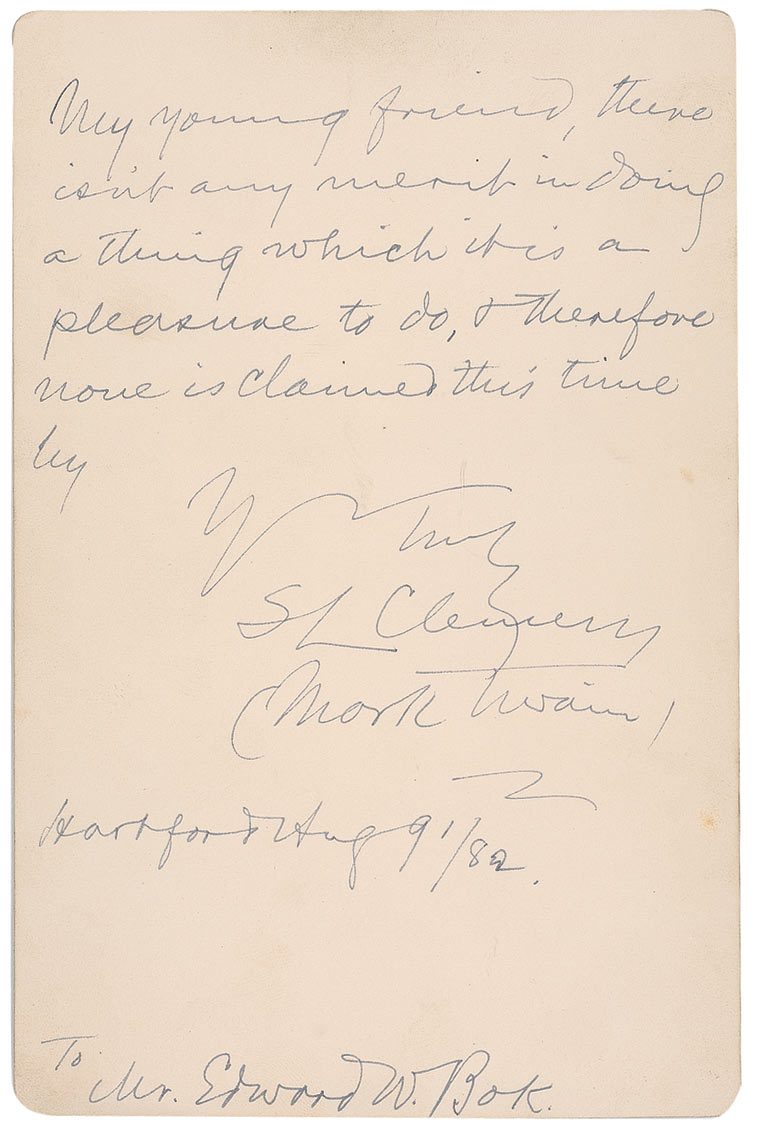 My young friend, there
isn't any merit in doing
a thing which it is a
pleasure to do, & therefore
none is claimed this time
by
Yr Truly
SL Clemens
(Mark Twain)
Hartford Aug 9/82.
To Mr. Edward W. Bok.